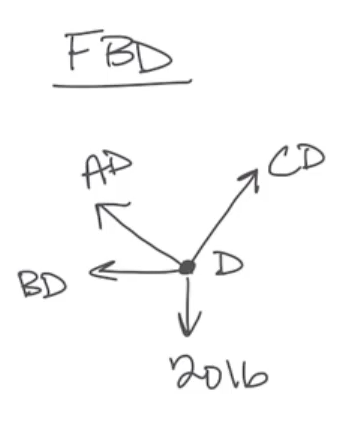 FBD
AD
CD
BD
D
20lb